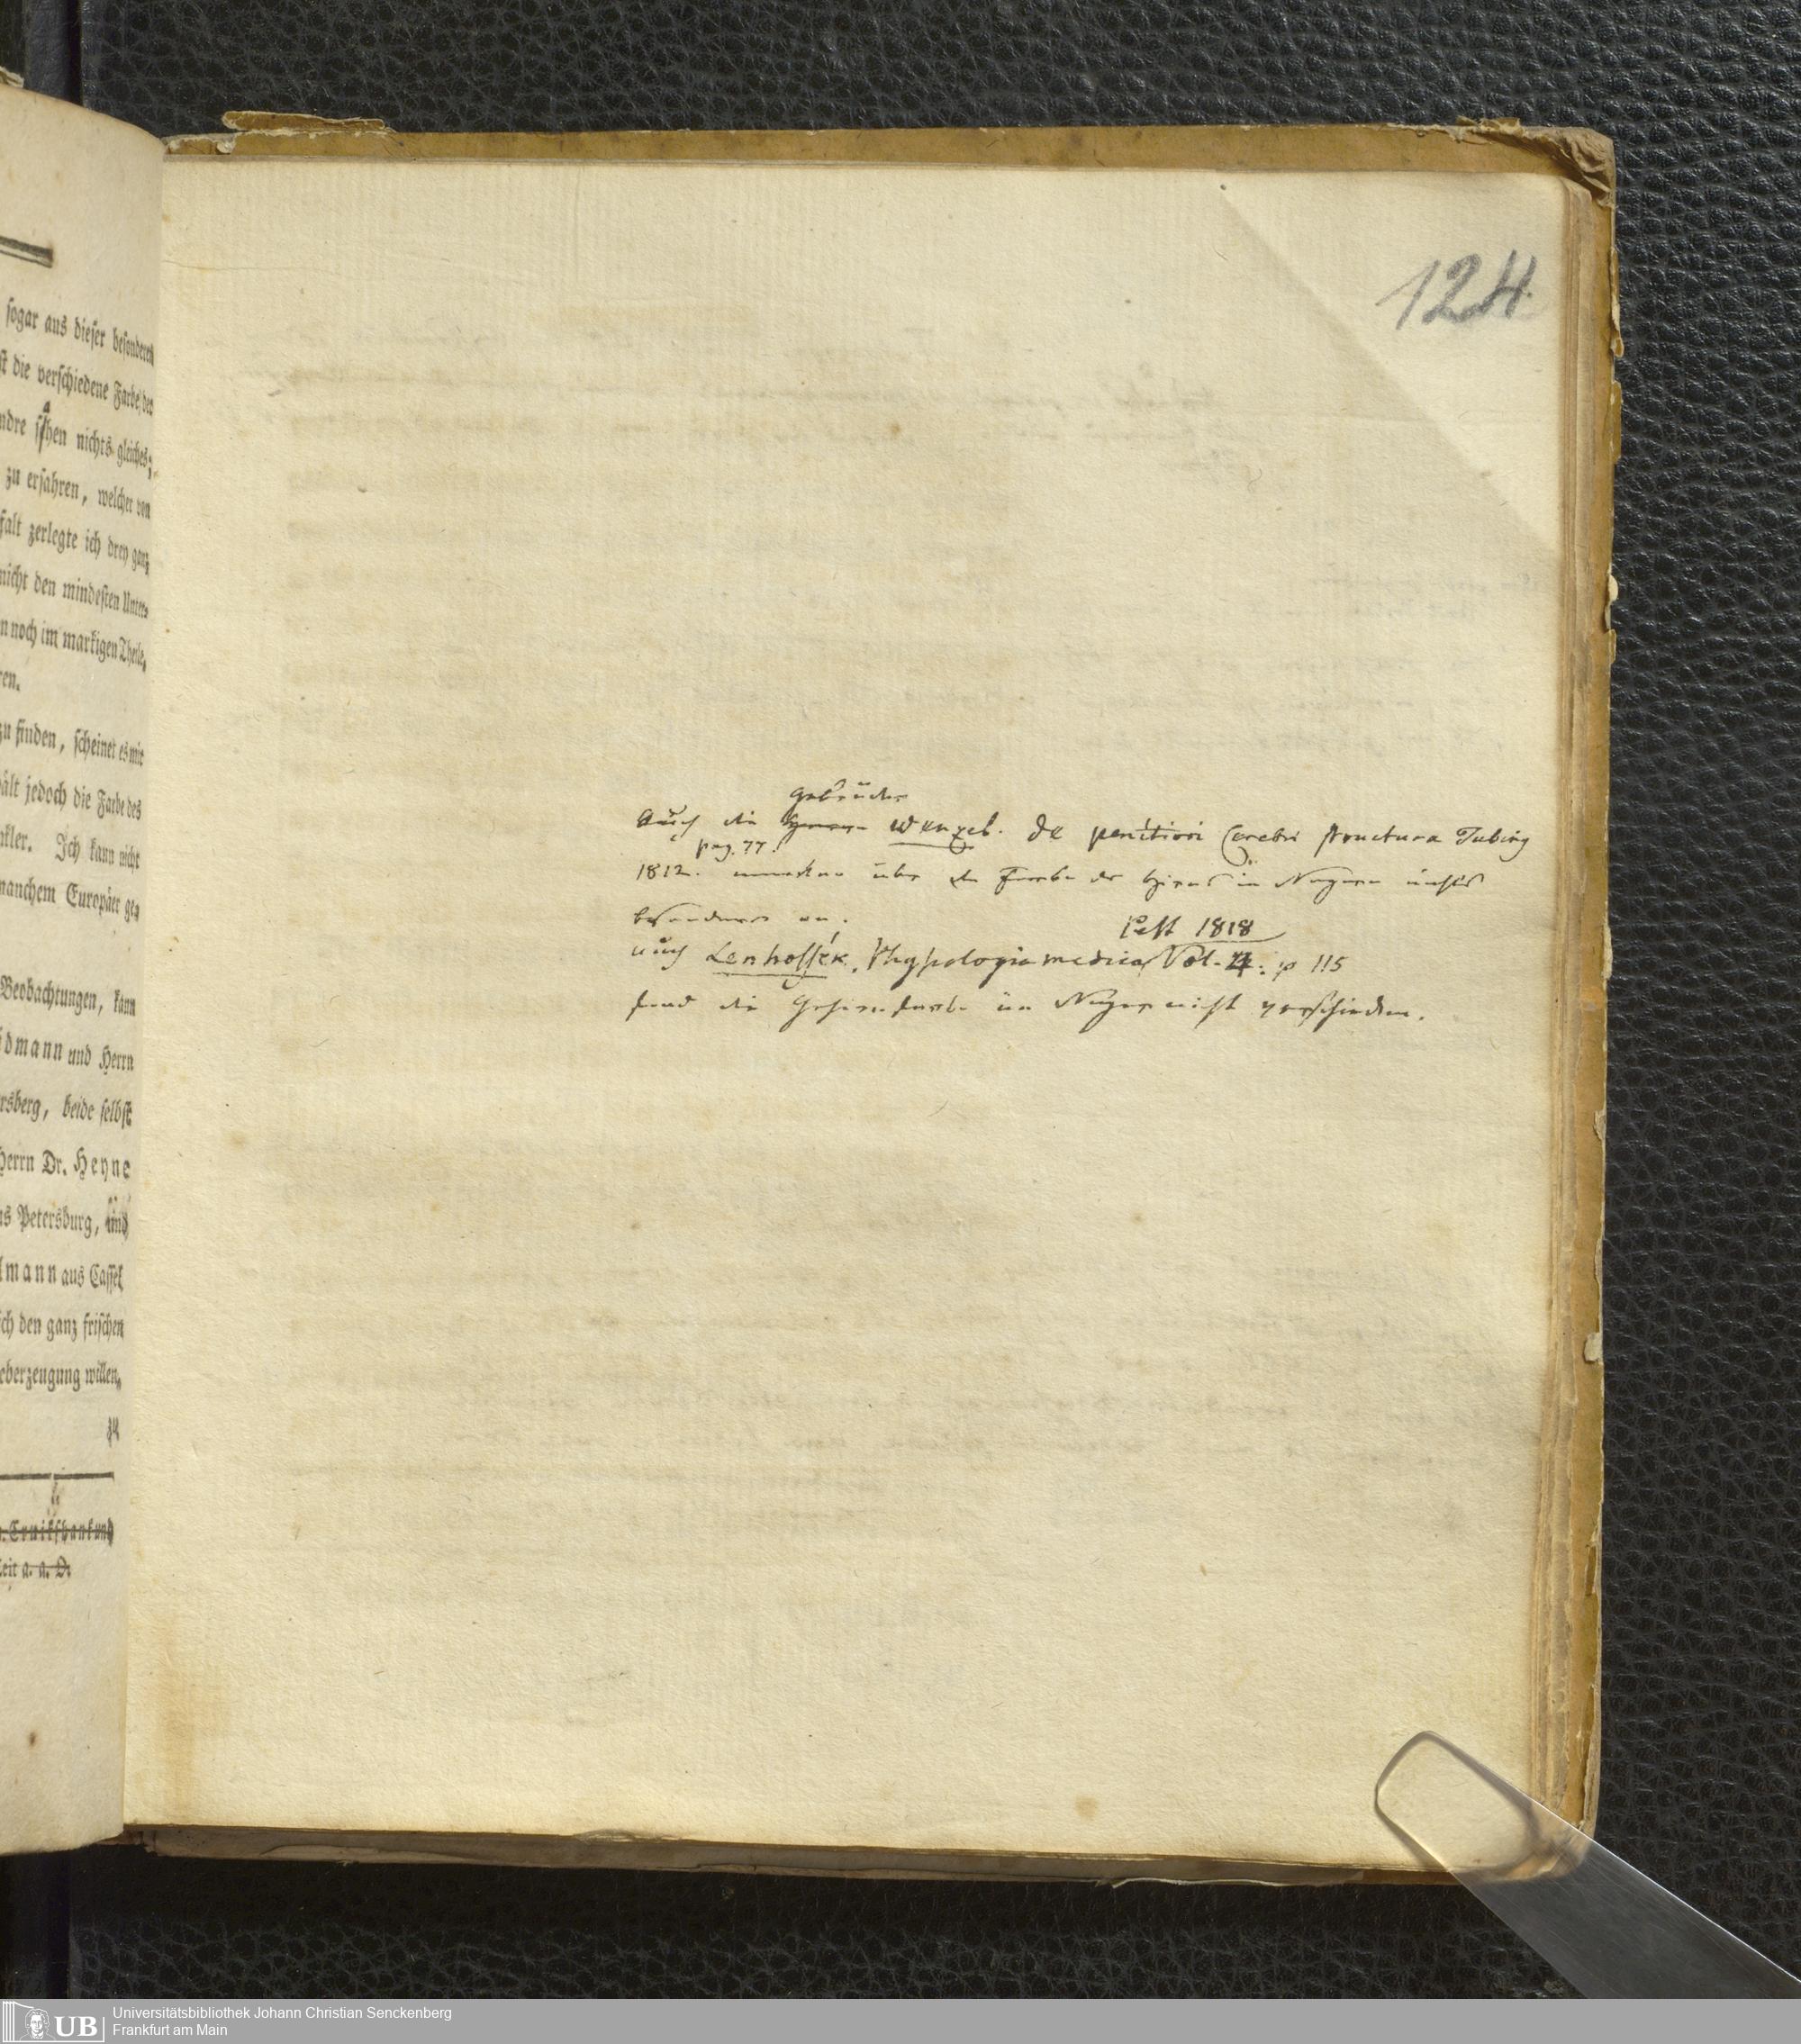 sogar aus dieser besonderen
st die verschiedene Farbe des
ndre sahen nichts gleiches;
zu erfahren, welcher von
falt zerlegte ich drey ganz
nicht den mindesten Unter-
n noch im markigen Theile,
ren.
zu finden, scheinet es mir
hält jedoch die Farbe des
nkler. Ich kann nicht
manchem Europäer ge-
Beobachtungen, kann
idmann und Herrn
rsberg, beide selbst
Herrn Dr. Heyne
us Petersburg, und
lmann aus Cassel
ich den ganz frischen
eberzeugung willen,
zu
. Cruikshank und
eit a. a. O.
124.
Gebrüder
Auch die Wenzel. De penitiori Cerebri structura Tubing
pag. 77.
1812. merken über die Farbe des Hirns im Negern nichts
besonderes an.
Pest 1818
auch Lenhossék. Physiologia medica Vol. 4. p 115
fand die Gehirnfarbe im Neger nicht verschieden.
UB
Universitätsbibliothek Johann Christian Senckenberg
Frankfurt am Main